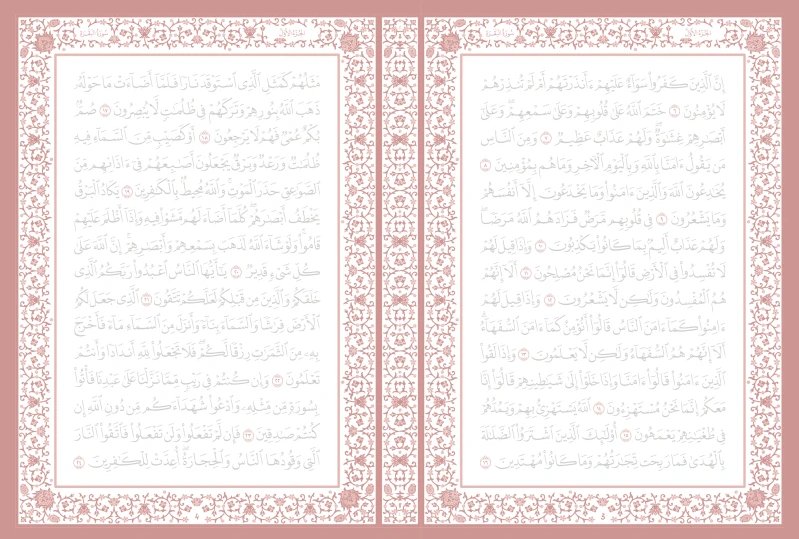 سُورَةُ البَقَرَةِ الجُزْءُ الأَوَّلُ
إِنَّ ٱلَّذِينَ كَفَرُواْ سَوَآءٌ عَلَيْهِمْ ءَأَنذَرْتَهُمْ أَمْ لَمْ تُنذِرْهُمْ
لَا يُؤْمِنُونَ ٦ خَتَمَ ٱللَّهُ عَلَىٰ قُلُوبِهِمْ وَعَلَىٰ سَمْعِهِمْ وَعَلَىٰٓ
أَبْصَٰرِهِمْ غِشَٰوَةٌ وَلَهُمْ عَذَابٌ عَظِيمٌ ٧ وَمِنَ ٱلنَّاسِ
مَن يَقُولُ ءَامَنَّا بِٱللَّهِ وَبِٱلْيَوْمِ ٱلْءَاخِرِ وَمَا هُم بِمُؤْمِنِينَ ٨
يُخَٰدِعُونَ ٱللَّهَ وَٱلَّذِينَ ءَامَنُواْ وَمَا يَخْدَعُونَ إِلَّآ أَنفُسَهُمْ
وَمَا يَشْعُرُونَ ٩ فِى قُلُوبِهِم مَّرَضٌ فَزَادَهُمُ ٱللَّهُ مَرَضًا
وَلَهُمْ عَذَابٌ أَلِيمٌۢ بِمَا كَانُواْ يَكْذِبُونَ ١٠ وَإِذَا قِيلَ لَهُمْ
لَا تُفْسِدُواْ فِى ٱلْأَرْضِ قَالُوٓاْ إِنَّمَا نَحْنُ مُصْلِحُونَ ١١ أَلَآ إِنَّهُمْ
هُمُ ٱلْمُفْسِدُونَ وَلَٰكِن لَّا يَشْعُرُونَ ١٢ وَإِذَا قِيلَ لَهُمْ
ءَامِنُواْ كَمَآ ءَامَنَ ٱلنَّاسُ قَالُوٓاْ أَنُؤْمِنُ كَمَآ ءَامَنَ ٱلسُّفَهَآءُ
أَلَآ إِنَّهُمْ هُمُ ٱلسُّفَهَآءُ وَلَٰكِن لَّا يَعْلَمُونَ ١٣ وَإِذَا لَقُواْ
ٱلَّذِينَ ءَامَنُواْ قَالُوٓاْ ءَامَنَّا وَإِذَا خَلَوْاْ إِلَىٰ شَيَٰطِينِهِمْ قَالُوٓاْ إِنَّا
مَعَكُمْ إِنَّمَا نَحْنُ مُسْتَهْزِءُونَ ١٤ ٱللَّهُ يَسْتَهْزِئُ بِهِمْ وَيَمُدُّهُمْ
فِى طُغْيَٰنِهِمْ يَعْمَهُونَ ١٥ أُوْلَٰٓئِكَ ٱلَّذِينَ ٱشْتَرَوُاْ ٱلضَّلَٰلَةَ
بِٱلْهُدَىٰ فَمَا رَبِحَت تِّجَٰرَتُهُمْ وَمَا كَانُواْ مُهْتَدِينَ ١٦
3
سُورَةُ البَقَرَةِ الجُزْءُ الأَوَّلُ
مَثَلُهُمْ كَمَثَلِ ٱلَّذِى ٱسْتَوْقَدَ نَارًا فَلَمَّآ أَضَآءَتْ مَا حَوْلَهُۥ
ذَهَبَ ٱللَّهُ بِنُورِهِمْ وَتَرَكَهُمْ فِى ظُلُمَٰتٍ لَّا يُبْصِرُونَ ١٧ صُمٌّۢ
بُكْمٌ عُمْىٌ فَهُمْ لَا يَرْجِعُونَ ١٨ أَوْ كَصَيِّبٍ مِّنَ ٱلسَّمَآءِ فِيهِ
ظُلُمَٰتٌ وَرَعْدٌ وَبَرْقٌ يَجْعَلُونَ أَصَٰبِعَهُمْ فِىٓ ءَاذَانِهِم مِّنَ
ٱلصَّوَٰعِقِ حَذَرَ ٱلْمَوْتِ وَٱللَّهُ مُحِيطٌۢ بِٱلْكَٰفِرِينَ ١٩ يَكَادُ ٱلْبَرْقُ
يَخْطَفُ أَبْصَٰرَهُمْ كُلَّمَآ أَضَآءَ لَهُم مَّشَوْاْ فِيهِ وَإِذَآ أَظْلَمَ عَلَيْهِمْ
قَامُواْ وَلَوْ شَآءَ ٱللَّهُ لَذَهَبَ بِسَمْعِهِمْ وَأَبْصَٰرِهِمْ إِنَّ ٱللَّهَ عَلَىٰ
كُلِّ شَىْءٍ قَدِيرٌ ٢٠ يَٰٓأَيُّهَا ٱلنَّاسُ ٱعْبُدُواْ رَبَّكُمُ ٱلَّذِى
خَلَقَكُمْ وَٱلَّذِينَ مِن قَبْلِكُمْ لَعَلَّكُمْ تَتَّقُونَ ٢١ ٱلَّذِى جَعَلَ لَكُمُ
ٱلْأَرْضَ فِرَٰشًا وَٱلسَّمَآءَ بِنَآءً وَأَنزَلَ مِنَ ٱلسَّمَآءِ مَآءً فَأَخْرَجَ
بِهِۦ مِنَ ٱلثَّمَرَٰتِ رِزْقًا لَّكُمْ فَلَا تَجْعَلُواْ لِلَّهِ أَندَادًا وَأَنتُمْ
تَعْلَمُونَ ٢٢ وَإِن كُنتُمْ فِى رَيْبٍ مِّمَّا نَزَّلْنَا عَلَىٰ عَبْدِنَا فَأْتُواْ
بِسُورَةٍ مِّن مِّثْلِهِۦ وَٱدْعُواْ شُهَدَآءَكُم مِّن دُونِ ٱللَّهِ إِن
كُنتُمْ صَٰدِقِينَ ٢٣ فَإِن لَّمْ تَفْعَلُواْ وَلَن تَفْعَلُواْ فَٱتَّقُواْ ٱلنَّارَ
ٱلَّتِى وَقُودُهَا ٱلنَّاسُ وَٱلْحِجَارَةُ أُعِدَّتْ لِلْكَٰفِرِينَ ٢٤
4